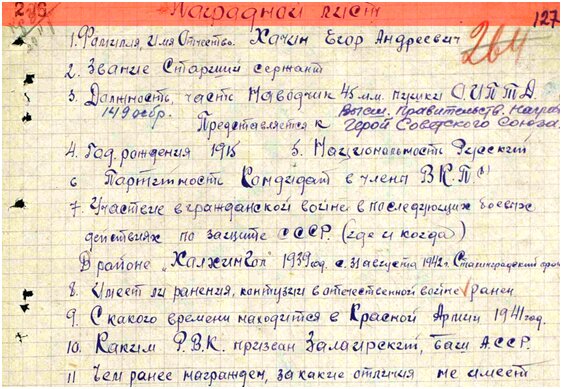 Наградной лист
127
264
1. Фамилия, Имя Отчество. Хачин Егор Андреевич
2. Звание Старший сержант
3. Должность, часть Наводчик 45 м.м. пушки ОИПТД
149 осбр. Высш. Правительств. Награде
Представляется к Герой Советского Союза.
4. Год рождения 1915 5. Национальность Русский
6 Партийность Кандидат в члена ВКП(б)
7. Участие в гражданской войне в последующих боевых
действиях по защите СССР. (где и когда)
В районе "Халхин Гол" 1939 год. с 31 августа 1942 г. Сталинградский фрон
8. Имеет ли ранения, контузии в отечественной войне ранен
9. С какого времени находится в Красной Армии 1941 год.
10. Каким Р.В.К. призван Залаирский, Баш А.ССР.
11 Чем ранее награжден, за какие отличия не имеет